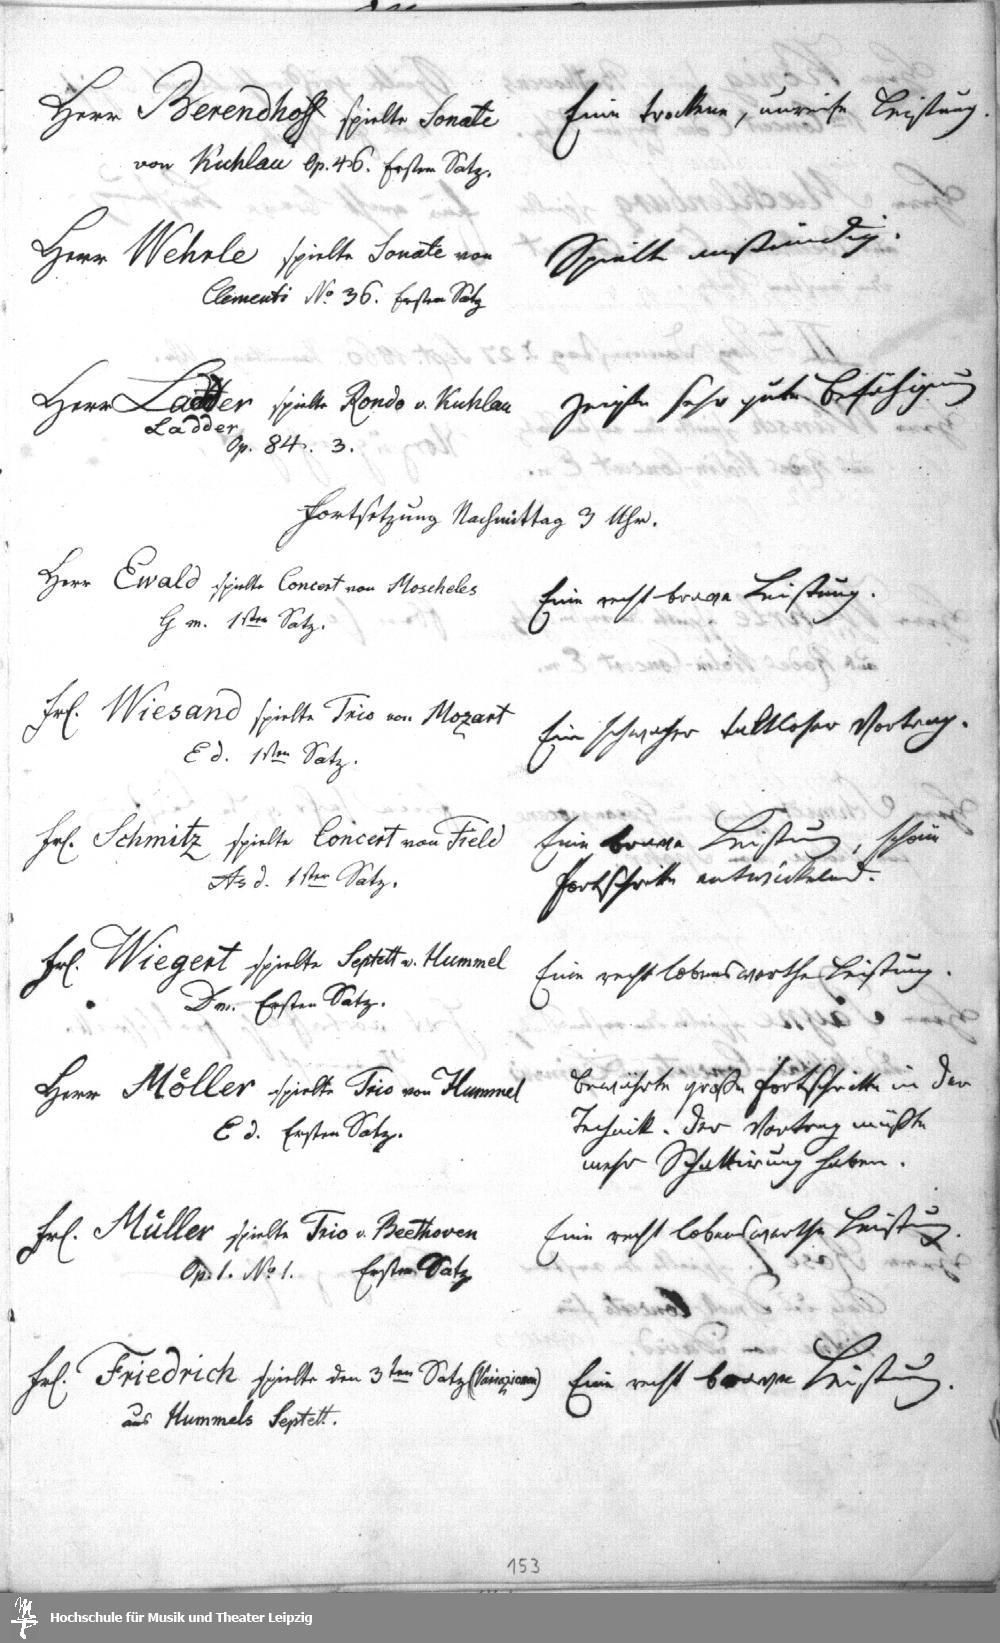 Herr Berendhoff spielte Sonate
von Kuhlau Op. 46. Ersten Satz.
Eine trockene, unreife Leistung.
Herr Wehrle spielte Sonate von
Clementi No 36. Ersten Satz
Spielt anständig.
Herr Ladder spielte Rondo v. Kuhlau
Ladder
Op. 84. 3.
zeigte sehr gute Befähigung
Fortsetzung Nachmittag 3 Uhr.
Herr Ewald spielte Concert von Moscheles
G m. 1sten Satz.
Eine recht brave Leistung.
Frl. Wiesand spielte Trio von Mozart
E d. 1sten Satz.
Ein schwacher taktloser Vortrag.
Frl. Schmitz spielte Concert von Field
As d. 1sten Satz.
Eine brave Leistung, schöne
Fortschritte entwickelnd.
Frl. Wiegert spielte Septett v. Hummel
Dm. Ersten Satz.
Eine recht lobenswerthe Leistung.
Herr Möller spielte Trio von Hummel
E d. Ersten Satz.
bewährte große Fortschritte in der
Technik. Der Vortrag müßte
mehr Schattirung haben.
Frl. Müller spielte Trio v. Beethoven
Op. 1. No 1. Ersten Satz
Eine recht lobenswerthe Leistung.
Frl. Friedrich spielte den 3ten Satz (Variazionen)
aus Hummels Septett.
Eine recht brave Leistung.
153
Hochschule für Musik und Theater Leipzig